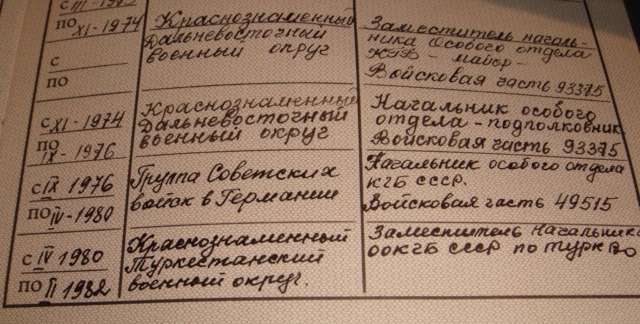 с III-197
по XI-1974
Краснознаменный
Дальневосточный
военный округ
Заместитель началь-
ника Особого отдела
КГБ - майор -
Войсковая часть 93375
с
по
с XI-1974
по IX-1976
Краснознаменный
Дальневосточный
военный округ
Начальник особого
отдела - подполковник
Войсковая часть 93375
с IX 1976
по IV-1980
Группа Советских
войск в Германии
Начальник особого отдела
КГБ СССР.
Войсковая часть 49515
с IV 1980
по II 1982
Краснознаменный
Туркестанский
военный округ.
Заместитель Начальника
ООКГБ СССР по ТуркВО